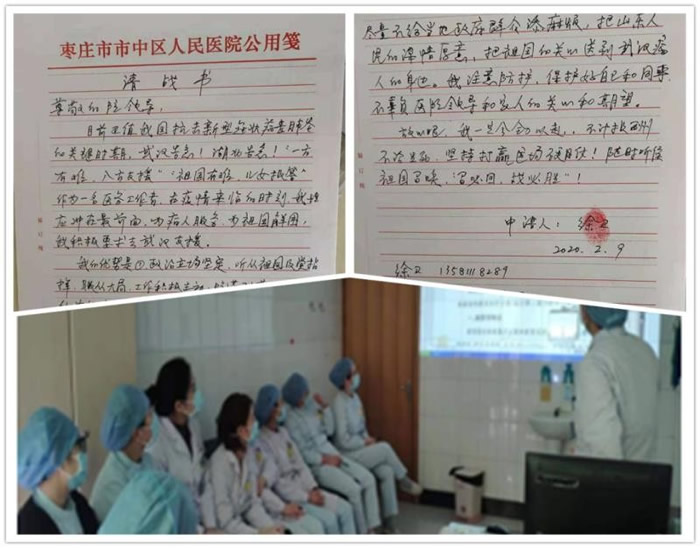 枣庄市市中区人民医院公用笺
请战书
尊敬的院领导：
目前正值我国抗击新型冠状病毒肺炎
的关键时期，武汉告急！湖北告急！“一方
有难，八方支援”“祖国有难，儿女抵挚”
作为一名医务工作者，在疫情来临的时刻，我理
应冲在最前面，为病人服务，为祖国解困，
我积极要求去武汉支援。
我的优势是①政治立场坚定，听从祖国及党指
挥，顾全大局，工作积极主动
尽量不给当地政府群众添麻烦，把山东人
民的深情厚意，把祖国的关心送到武汉病
人的身边。我注意防护，保护好自己和同事
不辜负医院领导和家人的关心和期望。
我一旦个令以赴，不计报酬
不论生死，坚持打赢这场
祖国召唤，“召必回，战必胜”！
申请人：徐卫
2020.2.9
徐卫 13581118289